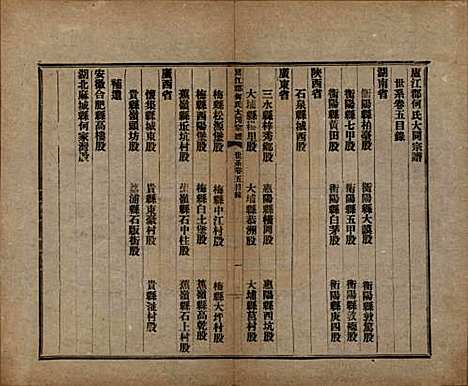 廬江郡何氏大同宗譜
世系卷五目錄
湖南省
衡陽縣柏薈股 衡陽縣大謨股 衡陽縣敦篤股
衡陽縣七甲股 衡陽縣五甲股 衡陽縣敦穆股
衡陽縣黃田股 衡陽縣白茅股 衡陽縣庚四股
陝西省
石泉縣城西股
廣東省
三水縣梓秀鄉股 惠陽縣橫岡股 惠陽縣西坑股
大埔縣桂里股 大埔縣恭洲股 大埔縣莒村股
廬江郡何氏大同宗譜 世系卷五目錄 一
梅縣松源堡股 梅縣中江村股 梅縣大坪村股
梅縣西陽堡股 梅縣白土堡股 蕉嶺縣高乾股
蕉嶺縣坵坑村股 蕉嶺縣石中柱股 蕉嶺縣石上村股
廣西省
懷集縣大岡股 貴縣東壆村股 貴縣 村股
貴縣嶺頭坊股 荔浦縣石版街股
補遺
安徽合肥縣高橋股
湖北麻城縣何家灣股